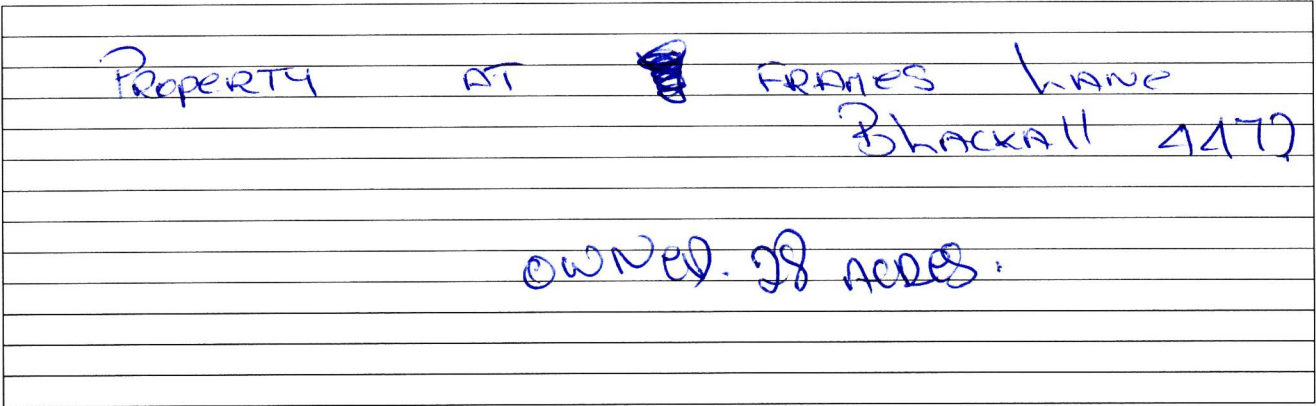 PROPERTY AT FRAMES LANE
BLACKALL 4472
OWNED. 28 ACRES.